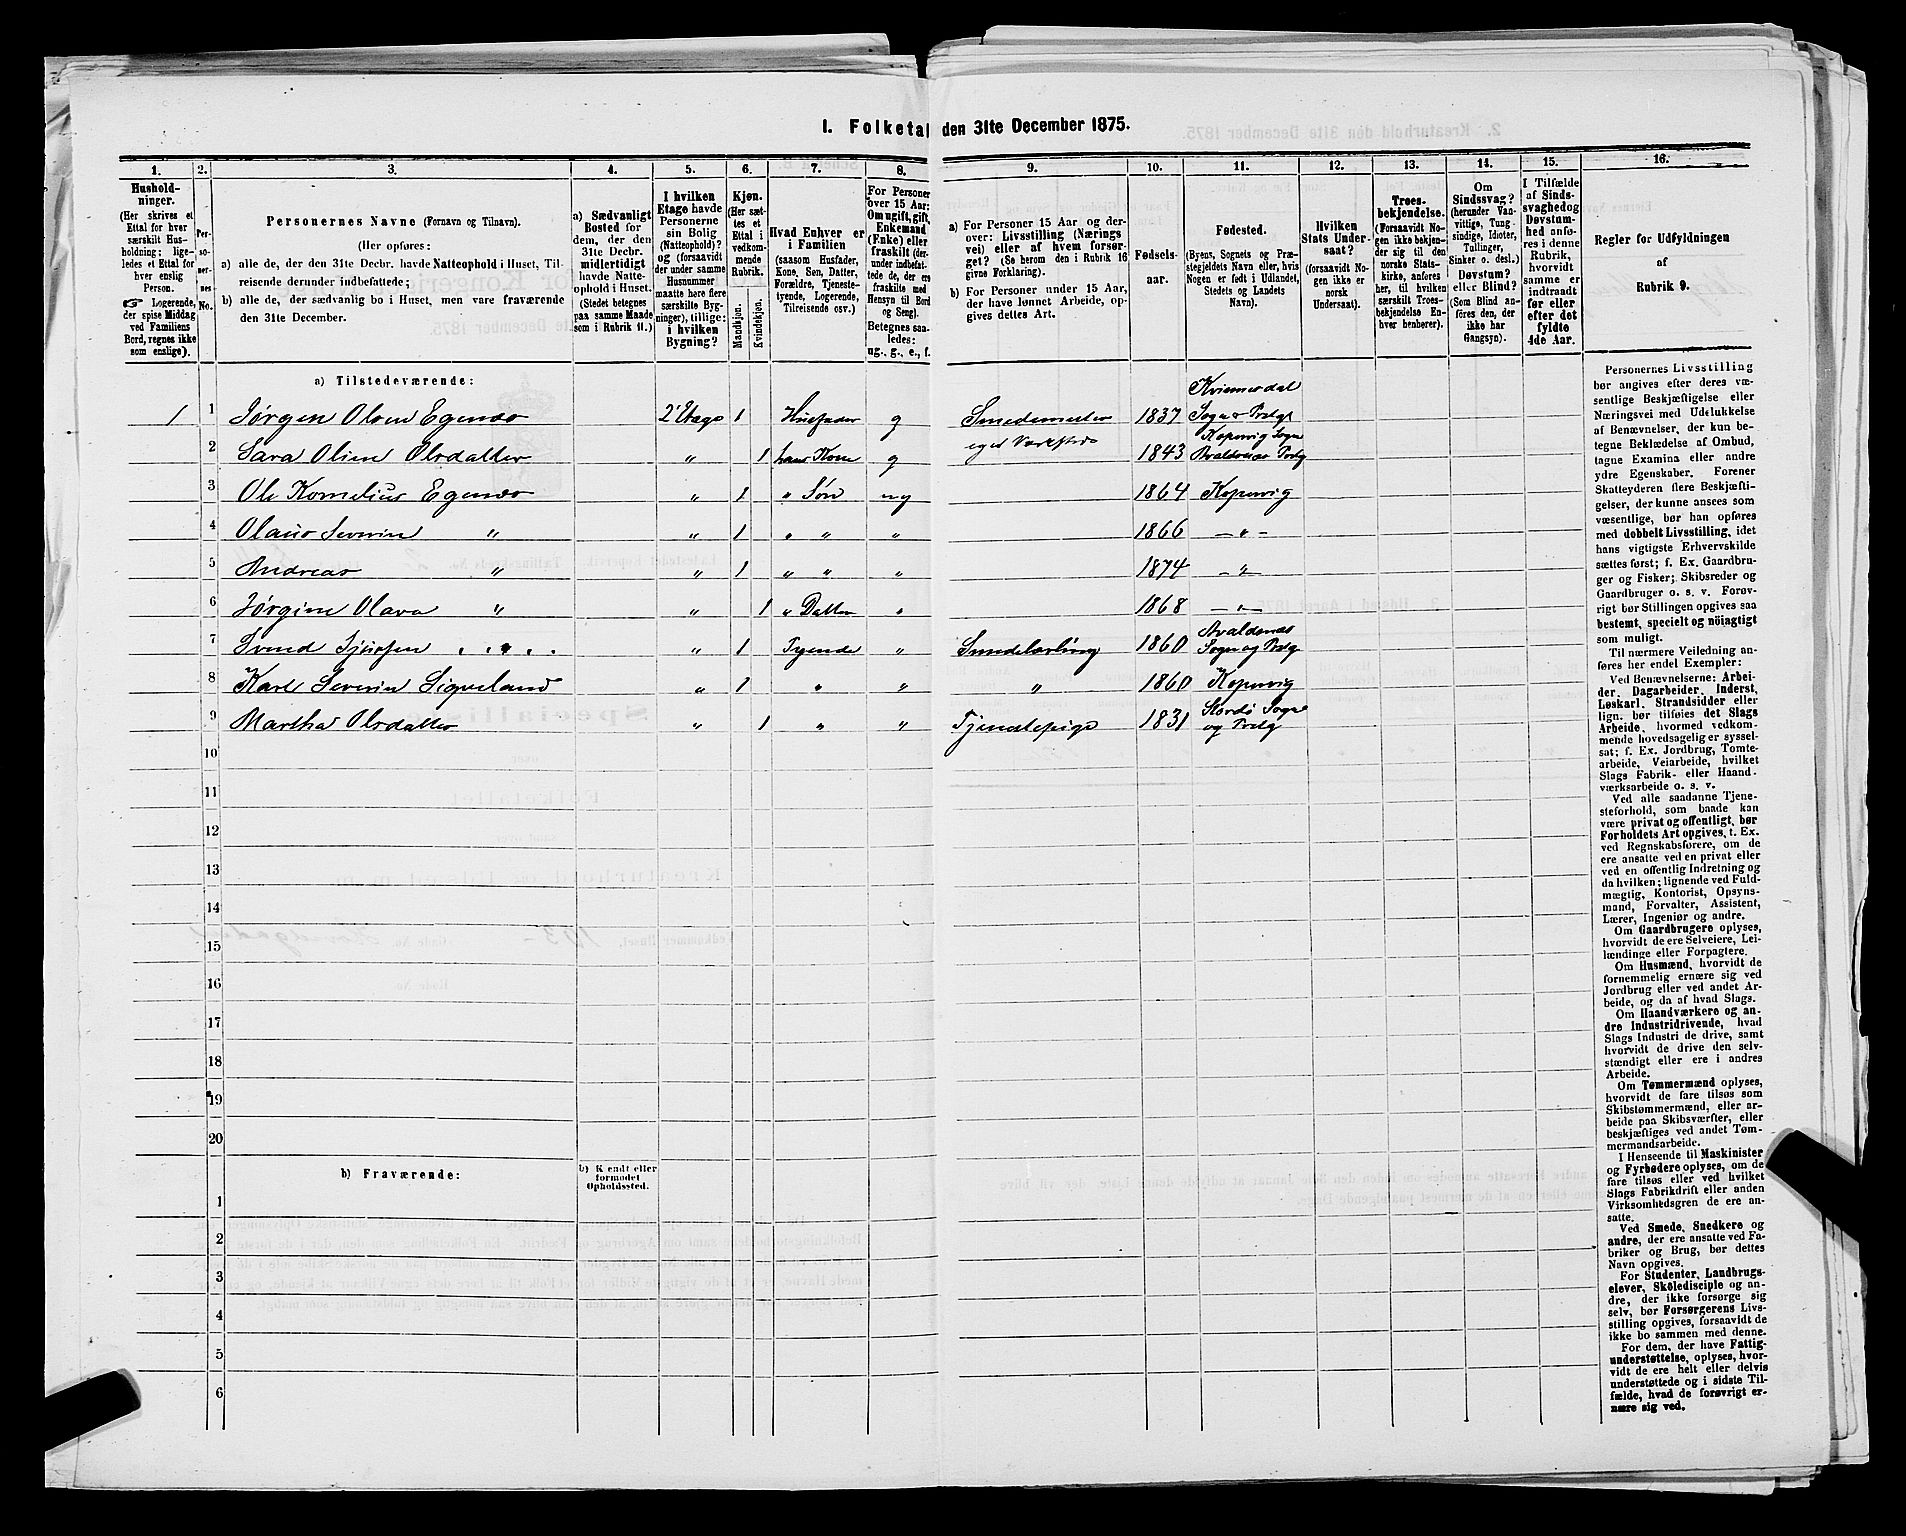 1. Folketal den 31te December 1875.
1.
2.
3.
4.
5.
6.
7.
8.
9.
10.
11.
12.
13.
14.
15.
16.
Hushold-
ninger.
(Her skrives et
Ettal for hver
særskilt Hus-
holdning; lige-
ledes et Ettal for
hver enslig
Person.
☞ Logerende,
der spise Middag
ved Familiens
Bord, regnes ikke
som enslige).
Per-
so-
ner-
nes
No.
Personernes Navne (Fornavn og Tilnavn).
(Her opføres:
a) alle de, der den 31te Decbr. havde Natteophold i Huset, Til-
reisende derunder indbefattede;
b) alle de, der sædvanlig bo i Huset, men vare fraværende
den 31te December.
a) Sædvanligt
Bosted for
dem, der den
31te Decbr.
midlertidigt
havde Natte-
ophold i Huset.
(Stedet betegnes
paa samme Maade
som i Rubrik 11.)
I hvilken
Etage havde
Personerne
sin Bolig
(Natteophold)?
og (forsaavidt
der under samme
Husnummer
maatte høre flere
særskilte Byg-
ninger), tillige:
i hvilken
Bygning?
Kjøn.
(Her sæt-
tes et
Ettal i
vedkom-
mende
Rubrik.
Mandkjøn.
Kvindekjøn.
Hvad Enhver er
i Familien
(saasom Husfader,
Kone, Søn, Datter,
Forældre, Tjeneste-
tyende, Logerende,
Tilreisende osv.)
For Personer
over 15 Aar:
Om ugift, gift,
Enkemand
(Enke) eller
fraskilt (der-
under indbefat-
tede de, der ere
fraskilte med
Hensyn til Bord
og Seng).
Betegnes saa-
ledes:
ug., g., e., f.
a) For Personer 15 Aar og der-
over: Livsstilling (Nærings
vei) eller af hvem forsør-
get? (Se herom den i Rubrik 16
givne Forklaring).
b) For Personer under 15 Aar,
der have lønnet Arbeide, op-
gives dettes Art.
Fødsels-
aar.
Fødested.
(Byens, Sognets og Præ-
stegjeldets Navn eller, hvis
Nogen er født i Udlandet,
Stedets og Landets
Navn).
Hvilken
Stats Under-
saat?
(forsaavidt No-
gen ikke er
norsk
Undersaat).
Troes-
bekjendelse.
(Forsaavidt No-
gen ikke bekjen-
der sig til den
norske Stats-
kirke, anføres
her, til hvilken
særskilt Troes-
bekjendelse En-
hver henhører).
Om
Sindssvag?
(herunder Van-
vittige, Tung-
sindige, Idioter,
Tullinger,
Sinker o. desl.).
Døvstum?
eller Blind?
(Som Blind an-
føres den, der
ikke har
Gangsyn).
I Tilfælde
af Sinds-
svaghed og
Døvstum-
hed anfø-
res i denne
Rubrik,
hvorvidt
samme er
indtraadt
før eller
efter det
fyldte
4de Aar.
Regler for Udfyldningen
af
Rubrik 9.
a) Tilstedeværende:
1 1 Jørgen Olsen Egenæs 2' Etage 1 Husfader g Smedemester 1837 Kvinnesdal Sogn & Prstg
2 Sara Olsdatter " 1 hans Kone g eget Værksted 1843 Kopervig Sogn Avaldsnæs Prstg
3 Ole Kornelius Egenæs " 1 " Søn ug 1864 Kopervig
4 Olaus Severin " " 1 " " " 1866 - " -
5 Andreas " " 1 " " " 1874 - "
6 Jørgine Olava " " 1 " Datter " 1868 - " -
7 Svend " 1 Tyende " Smedelærling 1860 Avaldsnæs Sogn og Prstg
8 Karl Severin Sigveland " 1 " " " 1860 Kopervig
9 Martha Olsdatter " 1 " " Tjenestepige 1831 Stordø Sogn og Prstg
10
11
12
13
14
15
16
17
18
19
20
b) Fraværende:
b) Kjendt eller
formodet
Opholdssted.
1
2
3
4
5
6
Personernes Livsstilling
bør angives efter deres væ-
sentlige Beskjæftigelse eller
Næringsvei med Udelukkelse
af Benævnelser, der kun be-
tegne Beklædelse af Ombud,
tagne Examina eller andre
ydre Egenskaber. Forener
Skatteyderen flere Beskjæfti-
gelser, der kunne ansees som
væsentlige, bør han opføres
med dobbelt Livsstilling, idet
hans vigtigste Erhvervskilde
sættes først; f. Ex. Gaardbru-
ger og Fisker; Skibsreder og
Gaardbruger o. s. v. Forøv-
rigt bør Stillingen opgives saa
bestemt, specielt og nöiagtigt
som muligt.
Til nærmere Veiledning an-
føres her endel Exempler:
Ved Benævnelserne: Arbei-
der, Dagarbeider, Inderst,
Løskarl, Strandsidder eller
lign. bør tilføies det Slags
Arbeide, hvormed vedkom-
mende hovedsagelig er syssel-
sat; f. Ex. Jordbrug, Tomte-
arbeide, Veiarbeide, hvilket
Slags Fabrik- eller Haand-
værksarbeide o. s. v.
Ved alle saadanne Tjene-
steforhold, som baade kan
være privat og offentligt, bør
Forholdets Art opgives, t. Ex.
ved Regnskabsførere, om de
ere ansatte ved en privat eller
ved en offentlig Indretning og
da hvilken; lignende ved Fuld-
mægtig, Kontorist, Opsyns-
mand, Forvalter, Assistent,
Lærer, Ingeniør og andre.
Om Gaardbrugere oplyses,
hvorvidt de ere Selveiere, Lei-
lændinge eller Forpagtere.
Om Husmænd, hvorvidt de
fornemmelig ernære sig ved
Jordbrug eller ved andet Ar-
beide, og da af hvad Slags.
Om Haandværkere og an-
dre Industridrivende, hvad
Slags Industri de drive, samt
hvorvidt de drive den selv-
stændigt eller ere i andres
Arbeide.
Om Tømmermænd oplyses,
hvorvidt de fare tilsøs som
Skibstømmermænd, eller ar-
beide paa Skibsværfter, eller
beskjæftiges ved andet Tøm-
mermandsarbeide.
I Henseende til Maskinister
og Fyrbødere oplyses, om de
fare tilsøs eller ved hvilket
Slags Fabrikdrift eller anden
Virksomhedsgren de ere an-
satte.
Ved Smede, Snedkere og
andre, der ere ansatte ved Fa-
briker og Brug, bør dettes
Navn opgives.
For Studenter, Landbrugs-
elever, Skoledisciple og an-
dre, der ikke forsørge sig
selv, bør Forsørgerens Livs-
stilling opgives, forsaavidt de
ikke bo sammen med denne.
For dem, der have Fattig-
understøttelse, oplyses, hvor-
vidt de ere helt eller delvis
understøttede og i sidste Til-
fælde, hvad de forøvrigt er-
nære sig ved.